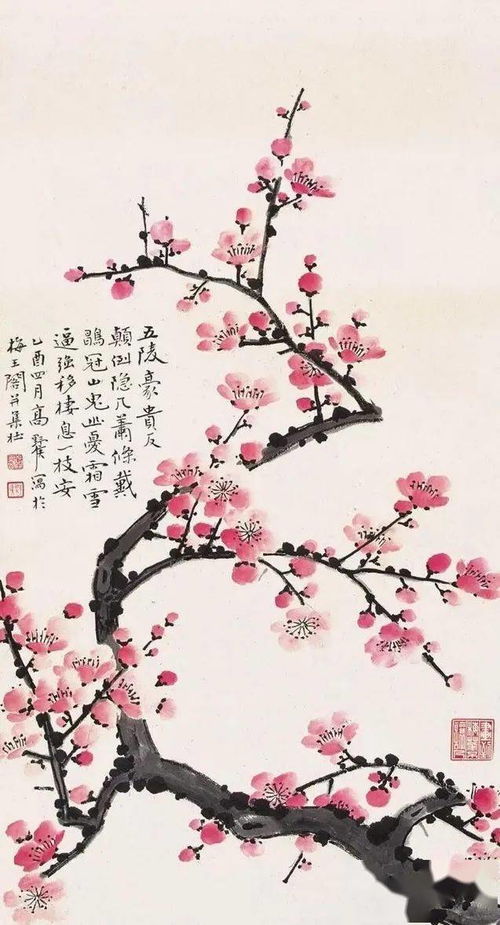 五陵豪貴反
顛倒隐几蕭條戴
鶡冠山鬼幽憂霜雪
逼強移棲息一枝安
乙酉四月高寫於
梅王閣并集杜